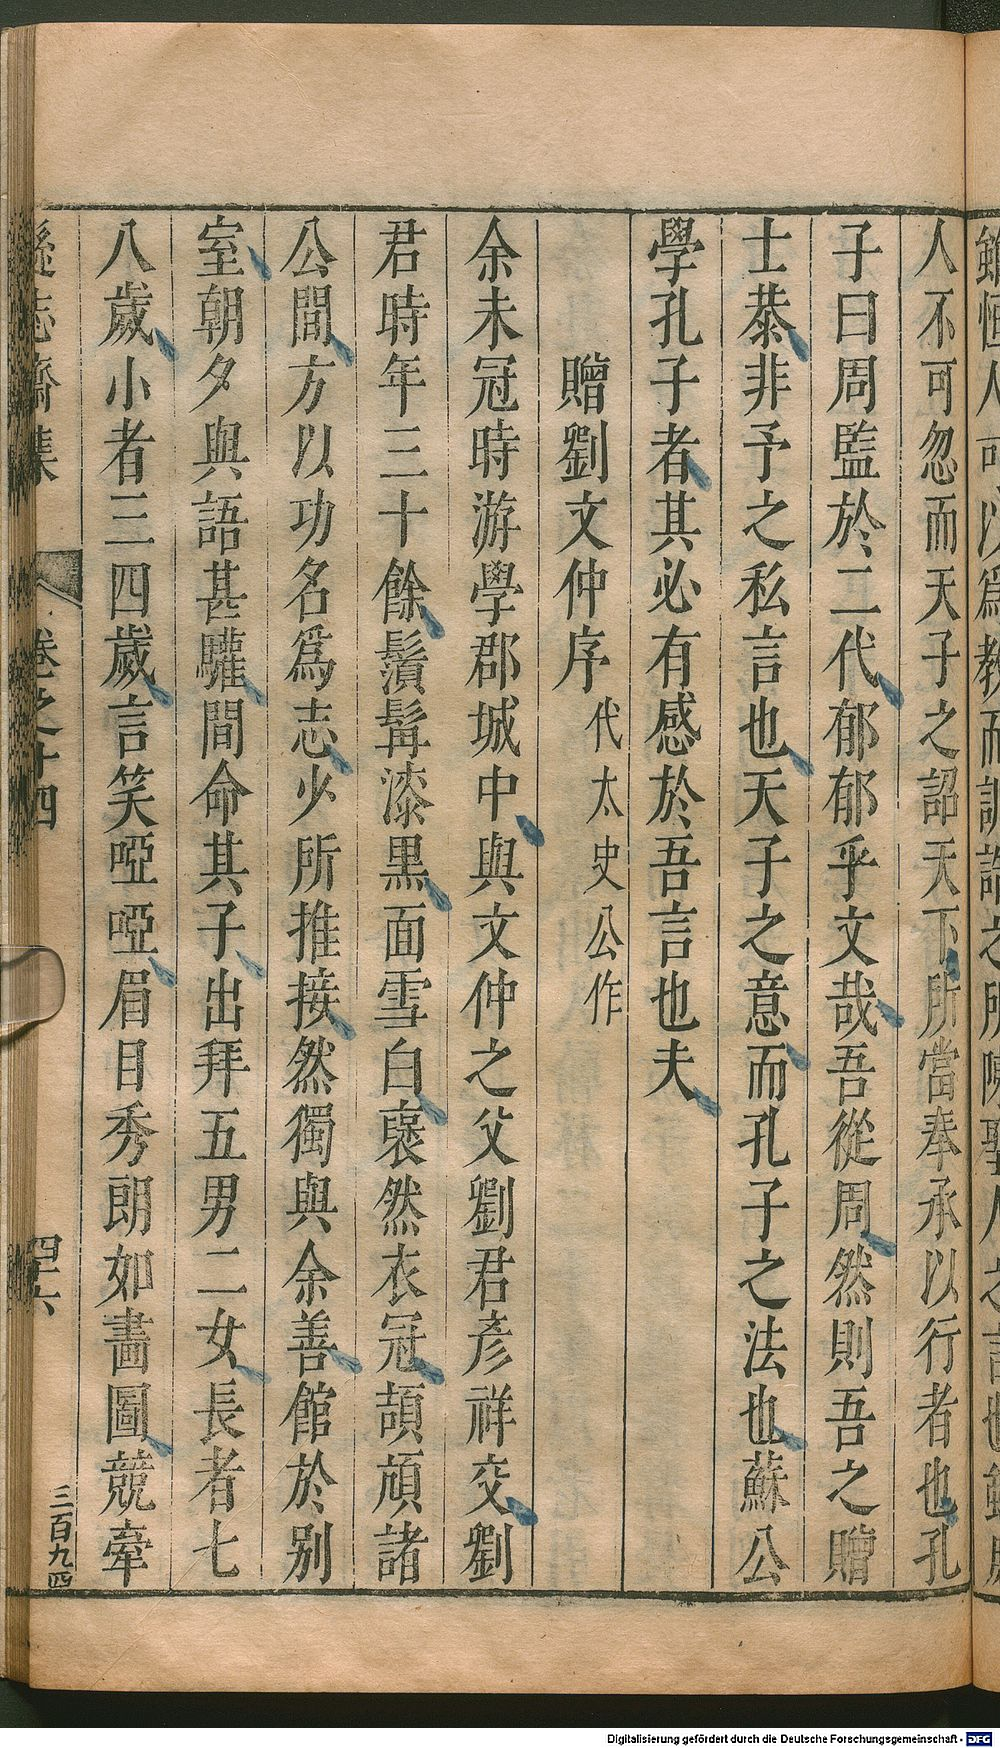 人不可忽而天子之詔天下所當奉承以行者也孔
子曰周監於二代郁郁乎文哉吾從周然則吾之贈
士恭非予之私言也天子之意而孔子之法也蘇公
學孔子者其必有感於吾言也夫
贈劉文仲序 代太史公作
余未冠時游學郡城中與文仲之父劉君彥祥交劉
君時年三十餘鬚髯漆黑面雪白褎然衣冠頡頏諸
公間方以功名爲志少所推接然獨與余善館於別
室朝夕與語甚驩間命其子出拜五男二女長者七
八歲小者三四歲言笑啞啞眉目秀朗如畫圖競牽
遜志齋集 卷之十四 四十六 三百九四
Digitalisierung gefördert durch die Deutsche Forschungsgemeinschaft - DFG